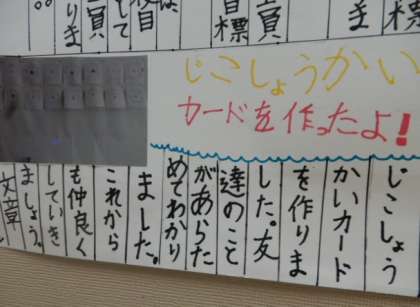 標
ま
員
目標
は、
目
して
員
りま
じこしょうかい
カードを作ったよ！
じこしょう
かいカード
を作りま
した。友
達のこと
があらた
めてわかり
ました。
これから
も仲良く
していき
ましょう。
文章